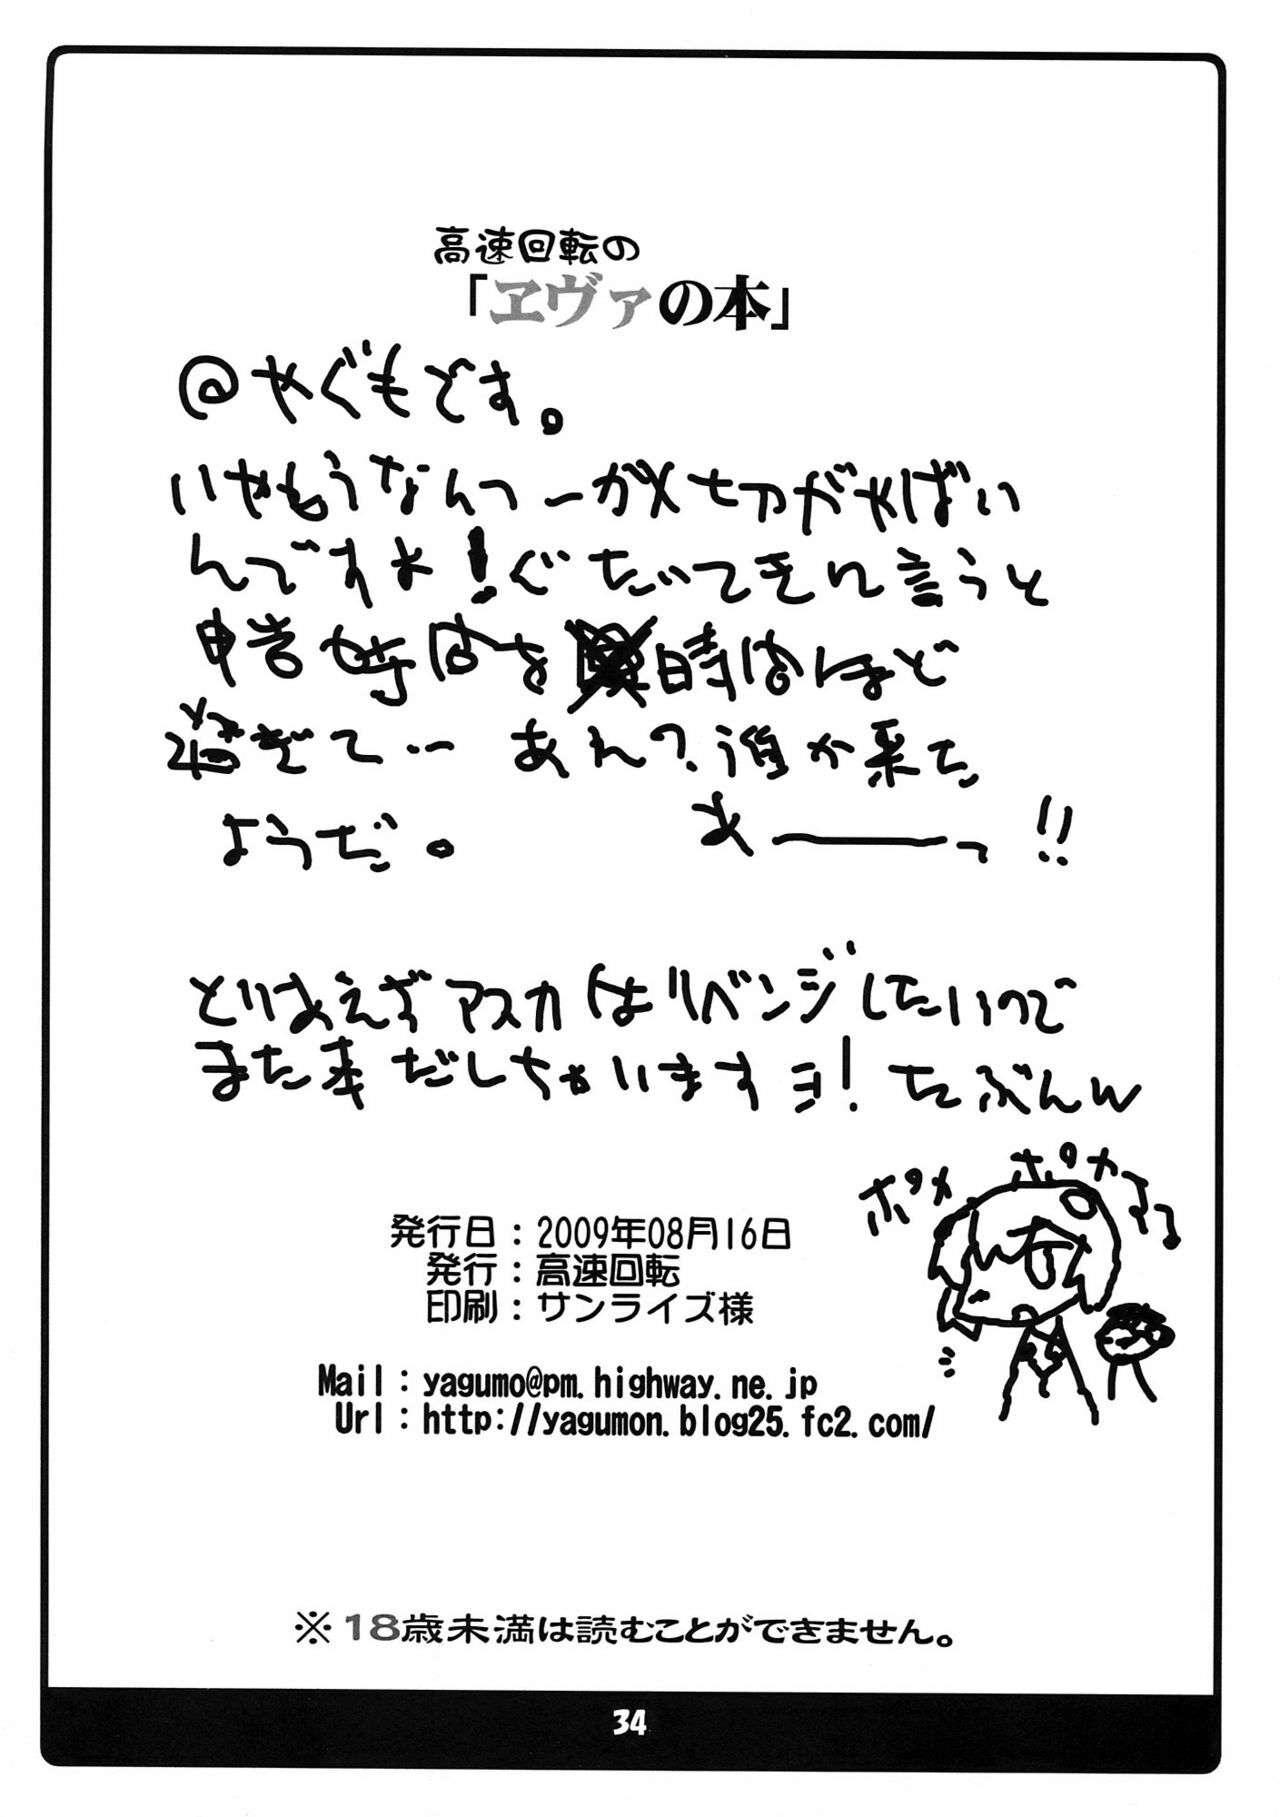 高速回転の
「ヱヴァの本」
@やぐもです。
いやもうなんつーか〆切がやばい
んですよ!ぐたいてきに言うと
申告時間を時間ほど
過ぎて… あれ?誰か来た
ようだ。 あーーっ!!
とりあえずアスカはリベンジしたいので
また本だしちゃいますヨ! たぶんw
発行日:2009年08月16日
発行:高速回転
印刷:サンライズ様
Mail:yagumo@pm.highway.ne.jp
Url:http://yagumon.blog25.fc2.com/
※18歳未満は読むことができません。
34